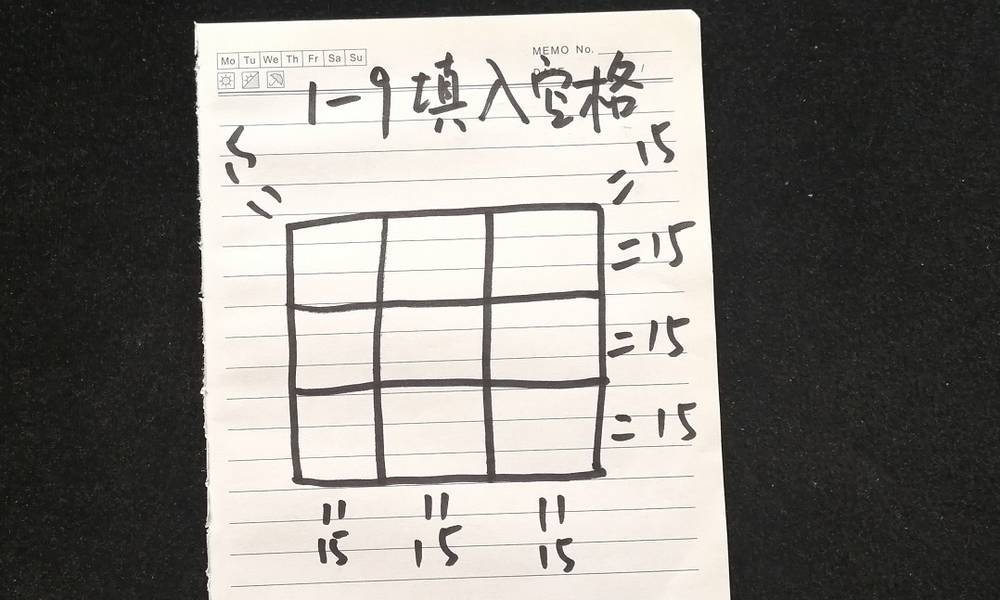 Mo Tu We Th Fr Sa Su
MEMO No.
1-9填入空格
15 =
= 15
=15
=15
=15
= = =
15 15 15